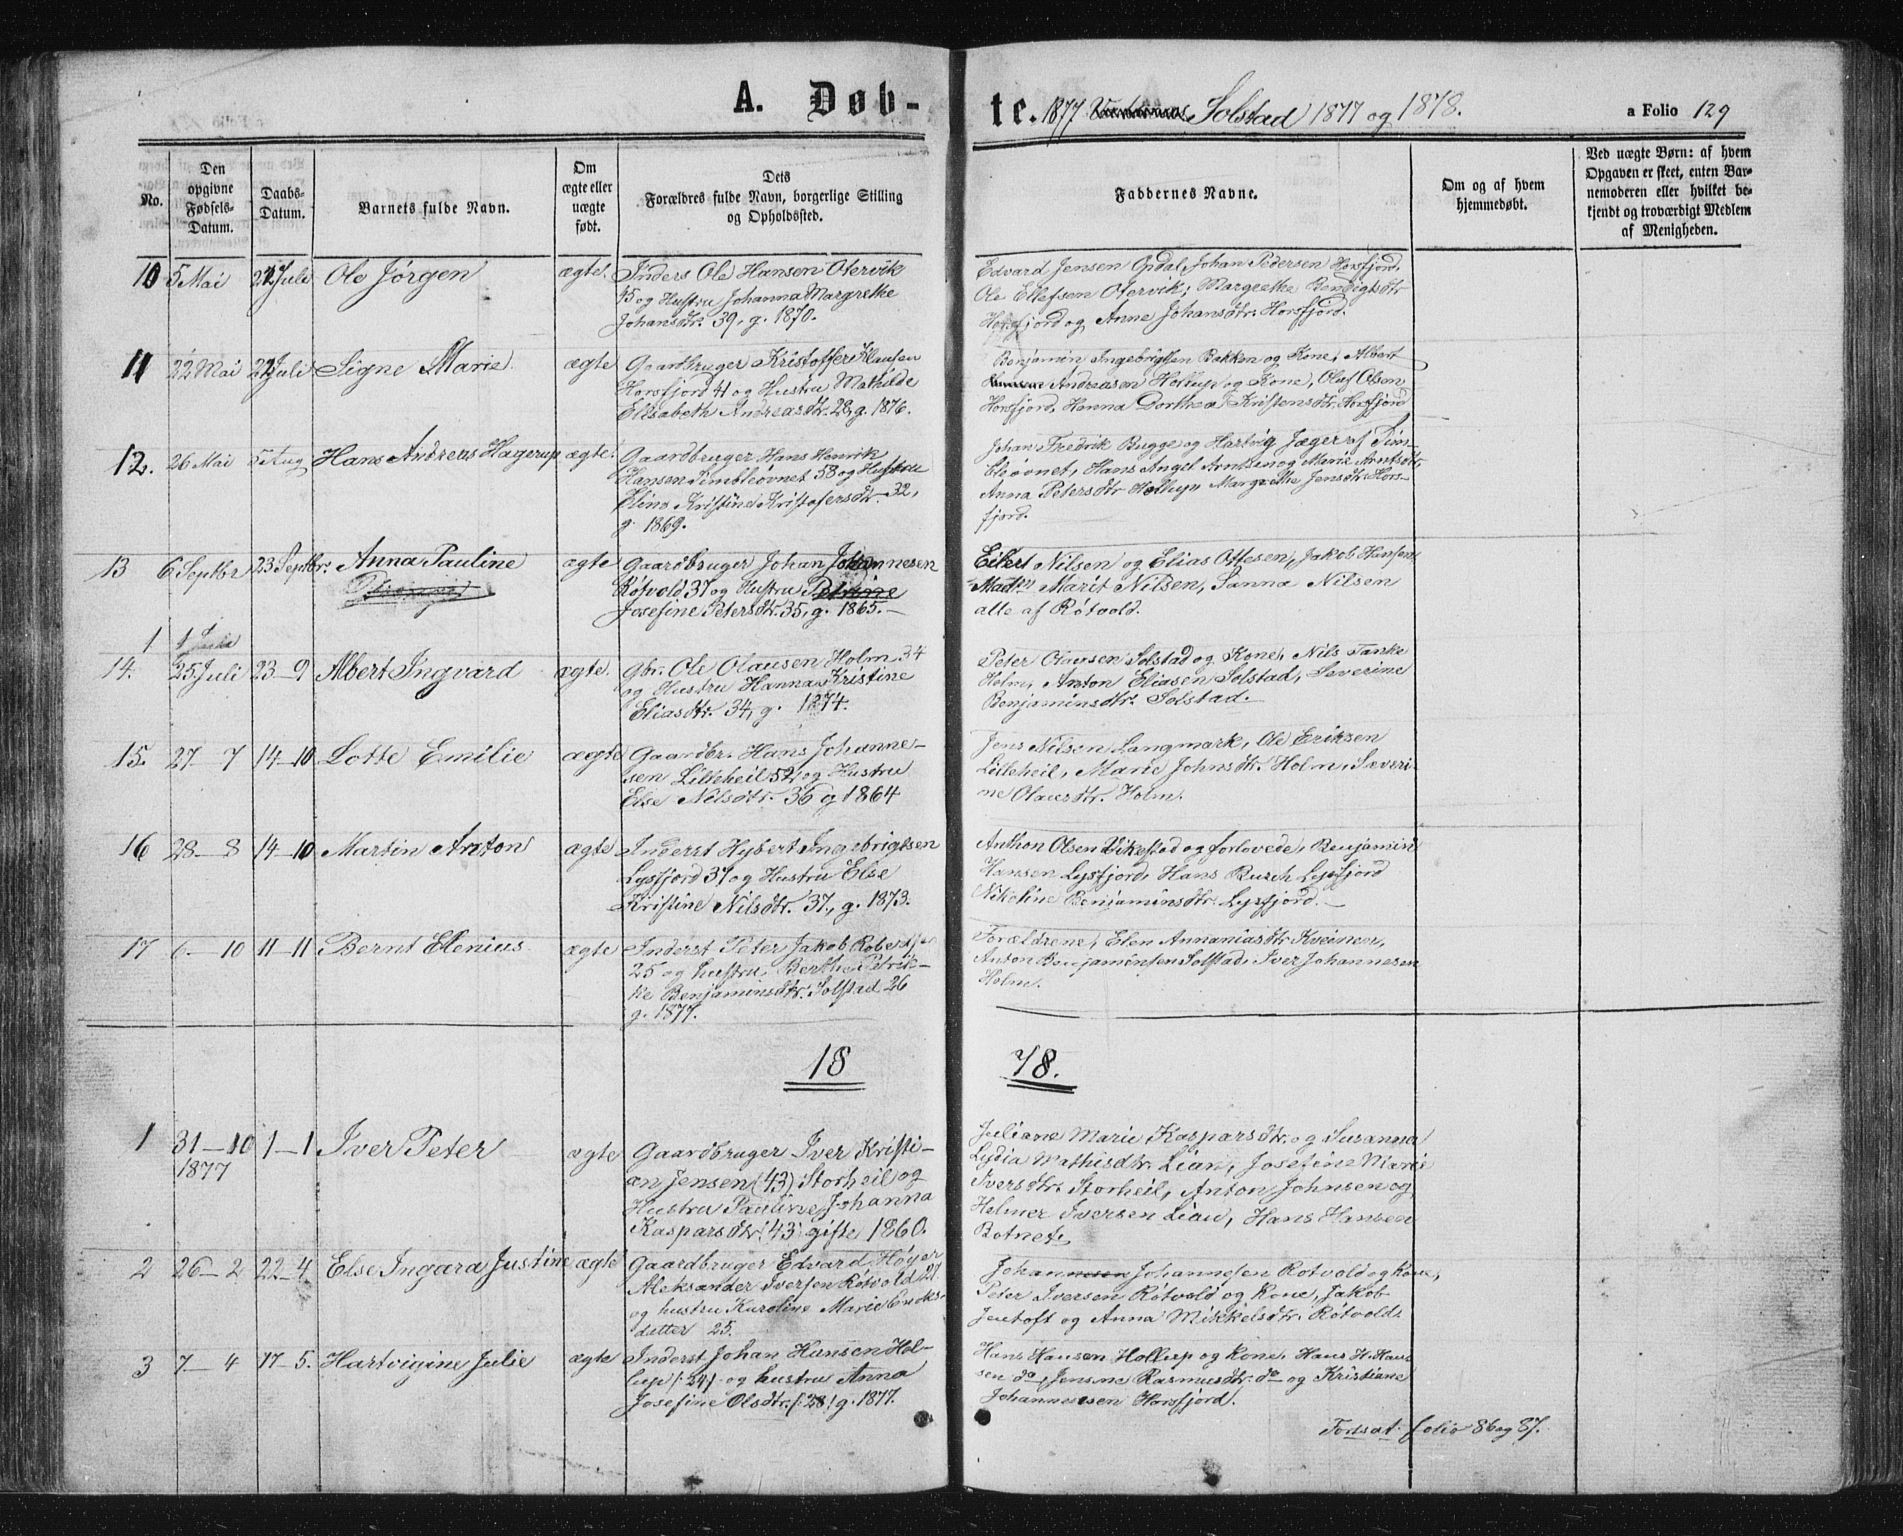 A. Døb-
te. 1877 Solstad 1877 og 1878.
a Folio 129
No.
Den opgivne Fødsels-Datum.
Daabs-Datum.
Barnets fulde Navn.
Om ægte eller uægte født.
Dets Forældres fulde Navn, borgerlige Stilling og Opholdssted.
Faddernes Navne.
Om og af hvem hjemmedøbt.
Ved uægte Børn: af hvem
Opgaven er skeet, enten Bar-
nemoderen eller hvilket be-
kjendt og troværdigt Medlem
af Menigheden.
10 5 Mai 22 Juli Ole Jørgen ægte. Inders Ole Hansen Otervik
og Hustru Johanna Margrethe
Johansdtr. 39, g. 1870.
Edvard Jensen Opdal, Johan Pedersen Horsfjord,
Ole Ellefsen Otervik, Margrethe Bendigtsdtr
Horsfjord og Anne Johansdtr. Horsfjord.
11 22 Mai 22 Juli Signe Marie. ægte Gaardbruger Kristoffer Klausen
Horsfjord 41 og Hustru Mathilde
Elisabeth Andreasdtr. 28, g. 1876.
Benjamin Ingebrigtsen Bakken og Kone, Albert
Andreasen Hollup og Kone, Oluf Olsen
Horsfjord, Hanna Dorthea Kristensdtr. Horsfjord
12. 26 Mai 5 Aug Hans Andreas Hagerup ægte. Gaardbruger Hans Henrik
Hansen Simbleøvnet 58 og Hustru
Eline Kristine Kristofersdtr. 32,
g. 1869.
Johan Fredrik Bugge og Hartvig Jæger af Sim-
bleøvnet, Hans Angel Arntsen og Marie Arntsdtr,
Anna Petersdtr Hollup, Margrethe Jensdtr. Hors-
fjord.
13 6 Septbr 23 Septbr. Anna Pauline ægte Gaardbruger Johan Johannesen
Rótvold 37 og Hustru Petrine
Josefine Petersdtr. 35, g. 1865.
Eilert Nilsen og Elias Ottesen, Jakob Hansen,
Marit Nilsen, Sanna Nilsen
alle af Rótvold.
1
14. 25 Juli 23-9 Albert Ingvard ægte. Gbr. Ole Olausen Holm 34
og Hustru Hanna Kristine
Eliasdtr. 34, g. 1874.
Peter Olausen Solstad og Kone, Nils Tanke
Holm, Anton Eliasen Solstad, Severine
Benjaminsdtr. Solstad.
15. 27-7 14-10 Lotte Emilie ægte Gaardbr. Hans Johanne-
sen Lilleheil 52 og Hustru
Else Nilsdtr. 36 g 1864
Jens Nilsen Langmark, Ole Eriksen
Lilleheil, Marie Johnsdtr. Holm, Severi-
ne Olausdtr. Holm.
16 28-8 14-10 Martin Anton ægte Inderst Hybert Ingebrigtsen
Lysfjord 37 og Hustru Else
Kristine Nilsdtr. 37, g. 1873.
Anthon Olsen Vikestad og forlovede, Benjamin
Hansen Lysfjord, Hans Busch Lysfjord
Nikoline Benjaminsdtr. Lysfjord.
17 6-10 11-11 Bernt Elenius. ægte Inderst Peter Jakob Robertsen
25 og hustru Berthe Petrik-
ke Benjaminsdtr. Solstad 26
g. 1877.
Forældrene, Elen Annaniasdtr
Anton Benjaminsen Solstad, Iver Johannesen
Holm.
18 78.
1 31-10 1877 1-1 Iver Peter ægte Gaardbruger Iver Kristi-
an Jensen (43) Storheil og
Hustru Pauline Johanna
Kasparsdtr. (43) gifte 1860.
Juliane Marie Kasparsdtr. og Susanna
Lydia Mathisdtr. Lian, Josefine Marie
Iversdtr. Storheil, Anton Johnsen og
Helmer Iversen Lian, Hans Hansen
Botnet,
2 26-2 22-4 Else Ingara Justine ægte Gaardbruger Edvard Høyer
Aleksander Iversen Rótvold 27
og hustru Karoline Marie
datter 25.
Johannesen Johannesen Rótvold og Kone,
Peter Iversen Rótvold og Kone, Jakob
Jentoft og Anna Mikkelsdtr. Rótvold.
3 7-4 17-5. Hartvigine Julie ægte Inderst Johan Hansen Hol-
lup /: 24/ og hustru Anna
Josefine Olsdtr. /: 28/ g. 1877.
Hans Hansen Hollup og Kone, Hans H. Han-
sen do, Jensine Rasmusdtr. do og Kristiane
Johannesen Horsfjord.
Fortsat folio 86 og 87.